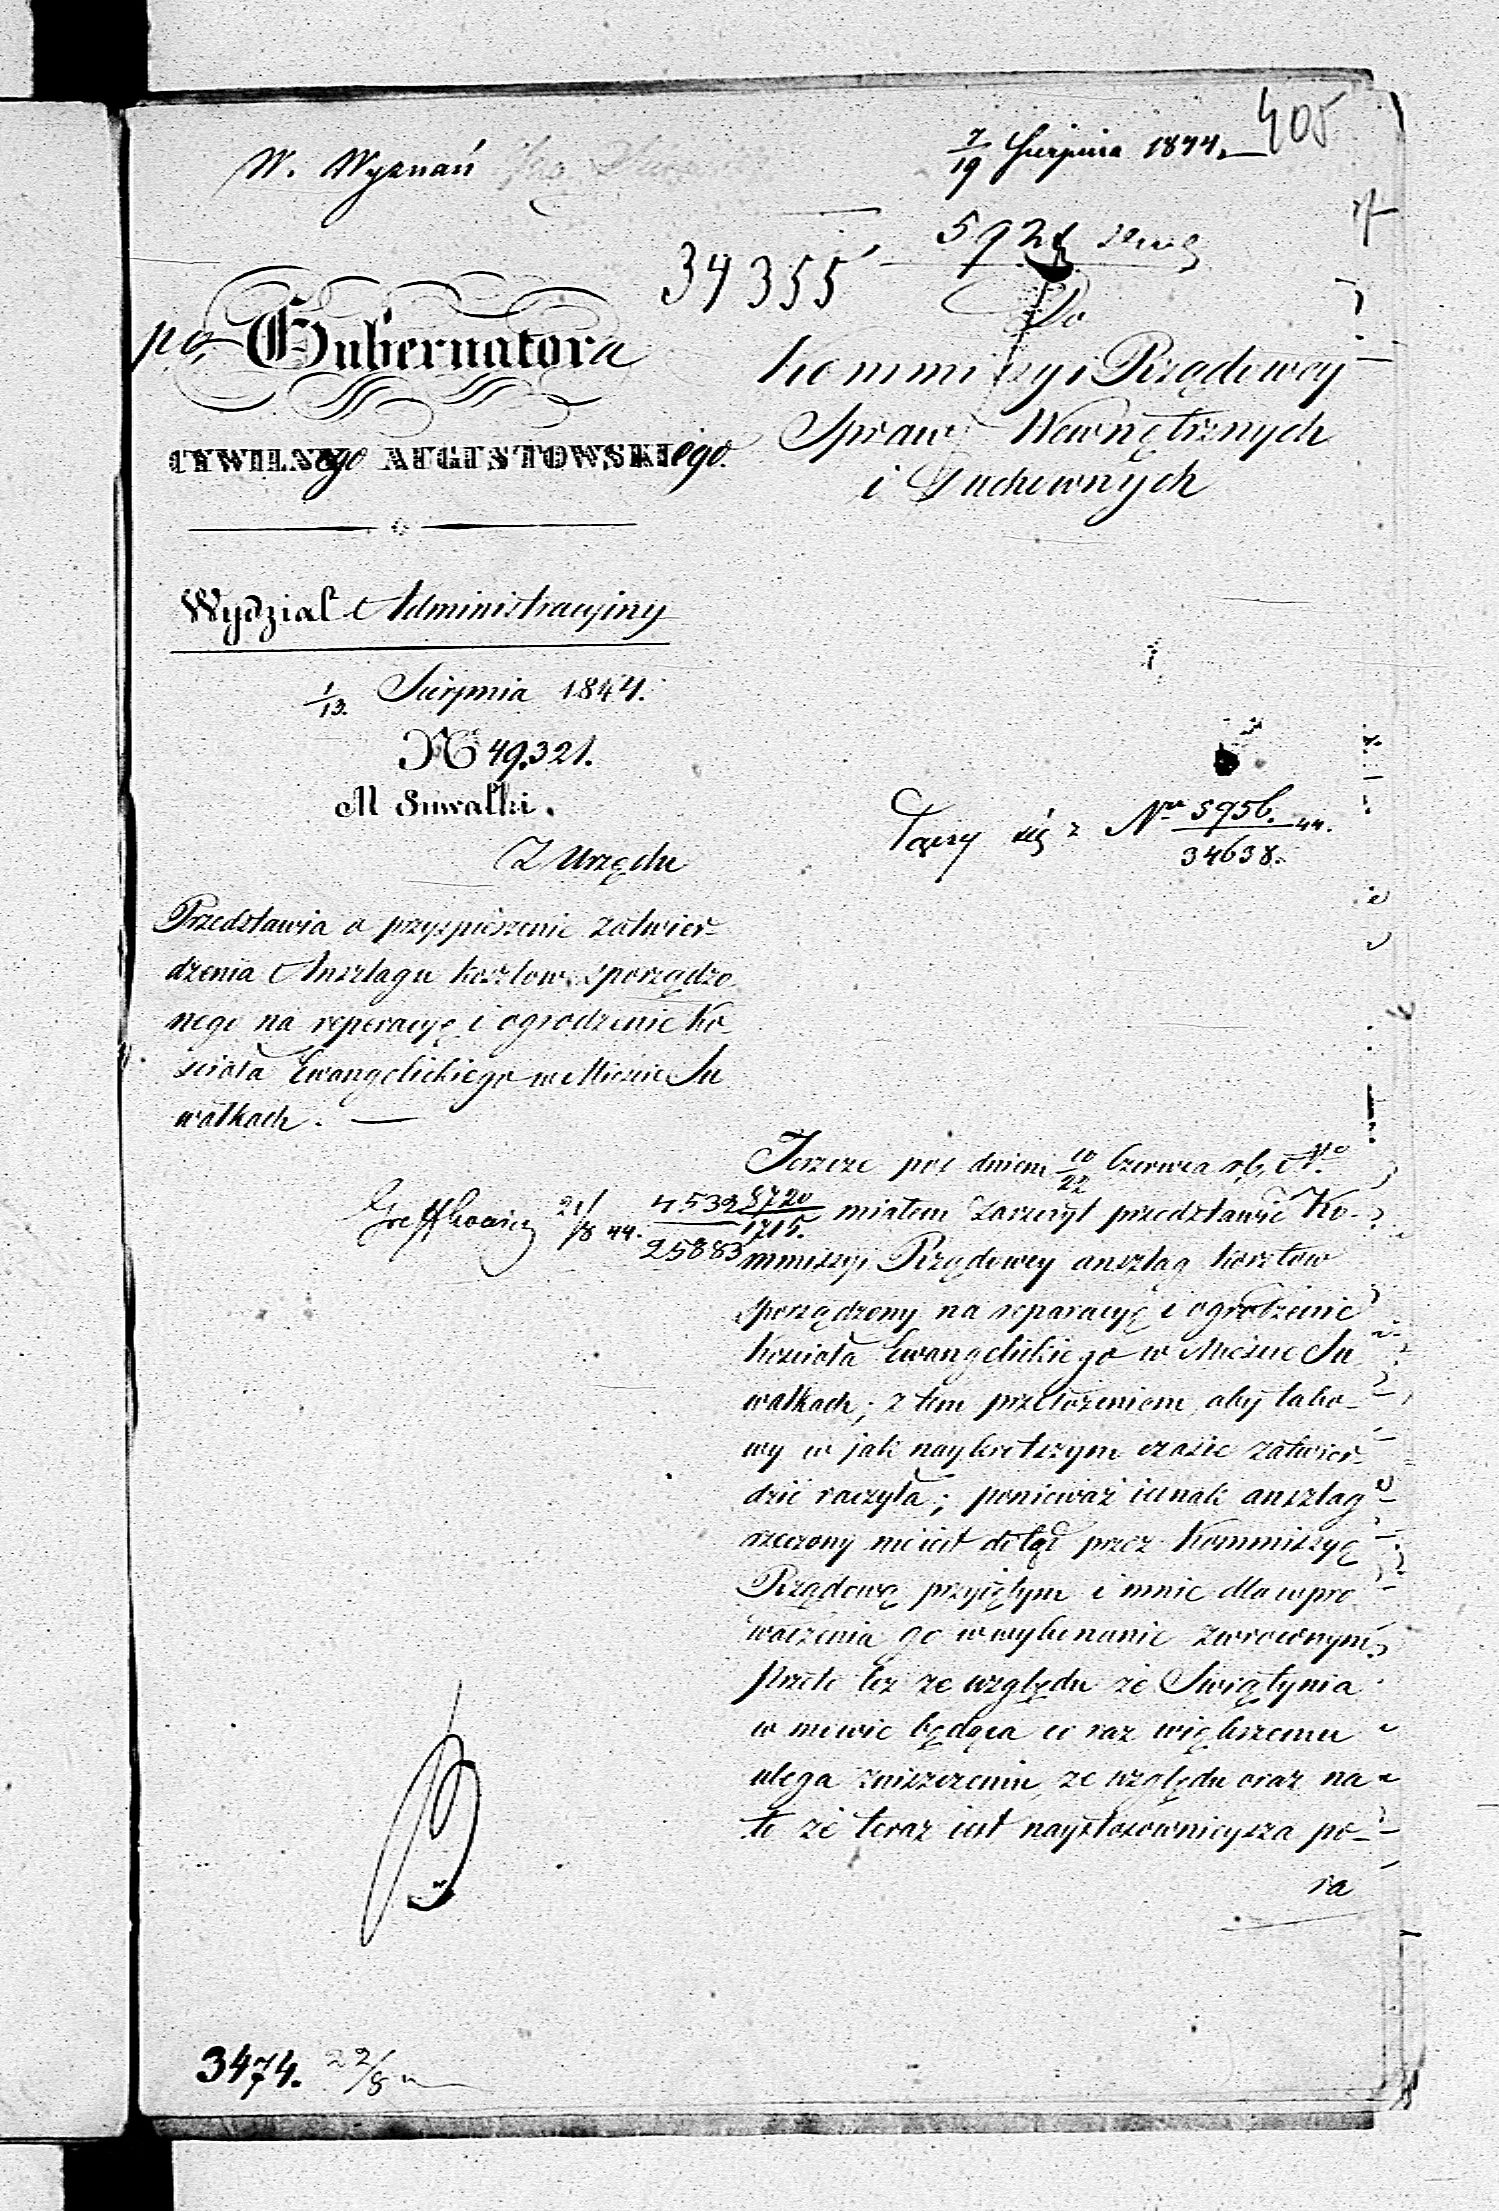 405
W. Wyznań
7/19 Sierpnia 1844.
34355
po Gubernatora
CYWILNego AUGUSTOWSKIego.
Do
Kommissyi Rządowey
Spraw Wewnętrznych
i Duchownych
Wydział Administracyiny
1/13. Sierpnia 1844.
N 49.321.
M Suwałki.
Łączy się z Nr 5956. 44.
34638.
Z Urzędu
Przedstawia o przyspieszenie zatwier-
dzenia Anszlagu kosztow sporządzo-
nego na reperacyę i ogrodzenie Ko-
scioła Ewangelickiego w Miescie Su
wałkach.
Jeszcze pod dniem 10/22 Czerwca r.b. No
5720/1715. miałem zaszczyt przedstawić Ko-
mmissyi Rządowey anszlag kosztow
sporządzony na reparacyę i ogrodzenie
koscioła Ewangelickiego w Miescie Su
wałkach; z tem przełożeniem aby tako-
wy w jak naykrotszym czasie zatwier-
dzić raczyła; ponieważ iednak anszlag
rzeczony nie iest dotąd przez Kommissyę
Rządową przyiętym i mnie dla wpro
wadzenia go w wykonanie zwroconym,
przeto tez ze względu że Swiątynia
w mowie będąca co raz większemu
ulega zniszczeniu, ze względu oraz na
to że teraz iest naystosownieysza po-
ra
21/8 44.
4532
25883
3474. 22/8